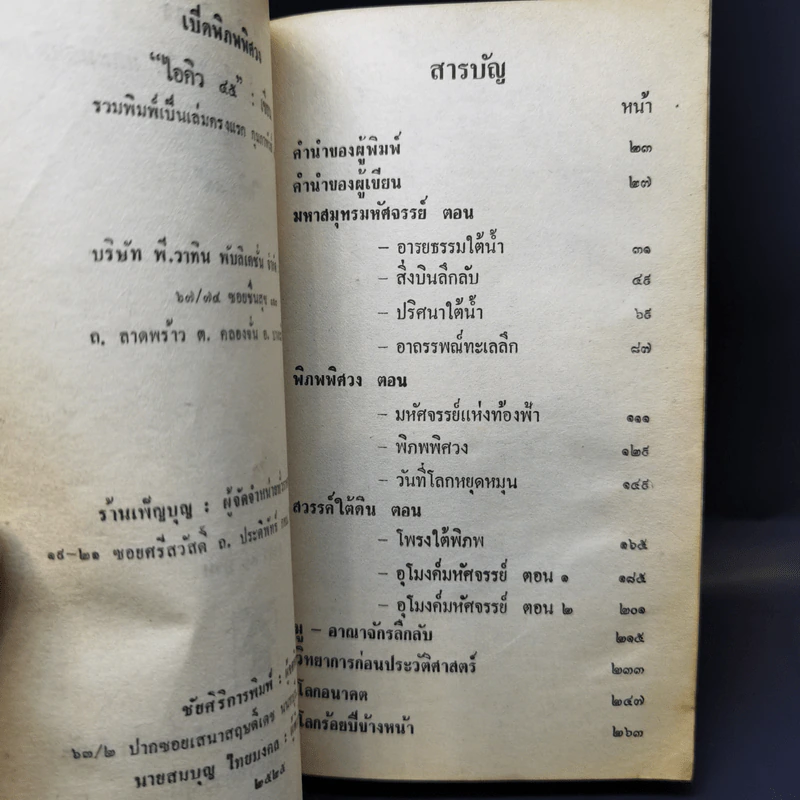 เปิดพิภพพิศวง
“ไอคิว ๔๕” :
รวมพิมพ์เป็นเล่มครั้งแรก
บริษัท พี.วาทิน พับลิเคชั่น จำกัด
๖๗/๗๔ ซอยชื่นสุข
ถ. ลาดพร้าว ต. คลองจั่น อ.
ร้านเพ็ญบุญ : ผู้จัดจำหน่าย
๑๙-๒๑ ซอยศรีสวัสดิ์ ถ. ประดิพัทธ์
ชัยศิริการพิมพ์ :
๖๓/๒ ปากซอยเสนาสฤษดิ์เดช
นายสมบุญ ไทยมงคล :
๒๕๒๕
สารบัญ
หน้า
คำนำของผู้พิมพ์ ๒๓
คำนำของผู้เขียน ๒๗
มหาสมุทรมหัศจรรย์ ตอน
- อารยธรรมใต้น้ำ ๓๑
- สิ่งบินลึกลับ ๔๙
- ปริศนาใต้น้ำ ๖๙
- อาถรรพณ์ทะเลลึก ๘๗
พิภพพิศวง ตอน
- มหัศจรรย์แห่งท้องฟ้า ๑๑๑
- พิภพพิศวง ๑๒๙
- วันที่โลกหยุดหมุน ๑๔๙
สวรรค์ใต้ดิน ตอน
- โพรงใต้พิภพ ๑๖๕
- อุโมงค์มหัศจรรย์ ตอน ๑ ๑๘๕
- อุโมงค์มหัศจรรย์ ตอน ๒ ๒๐๑
มู - อาณาจักรลึกลับ ๒๑๕
วิทยาการก่อนประวัติศาสตร์ ๒๓๓
โลกอนาคต ๒๔๗
โลกร้อยปีข้างหน้า ๒๖๓